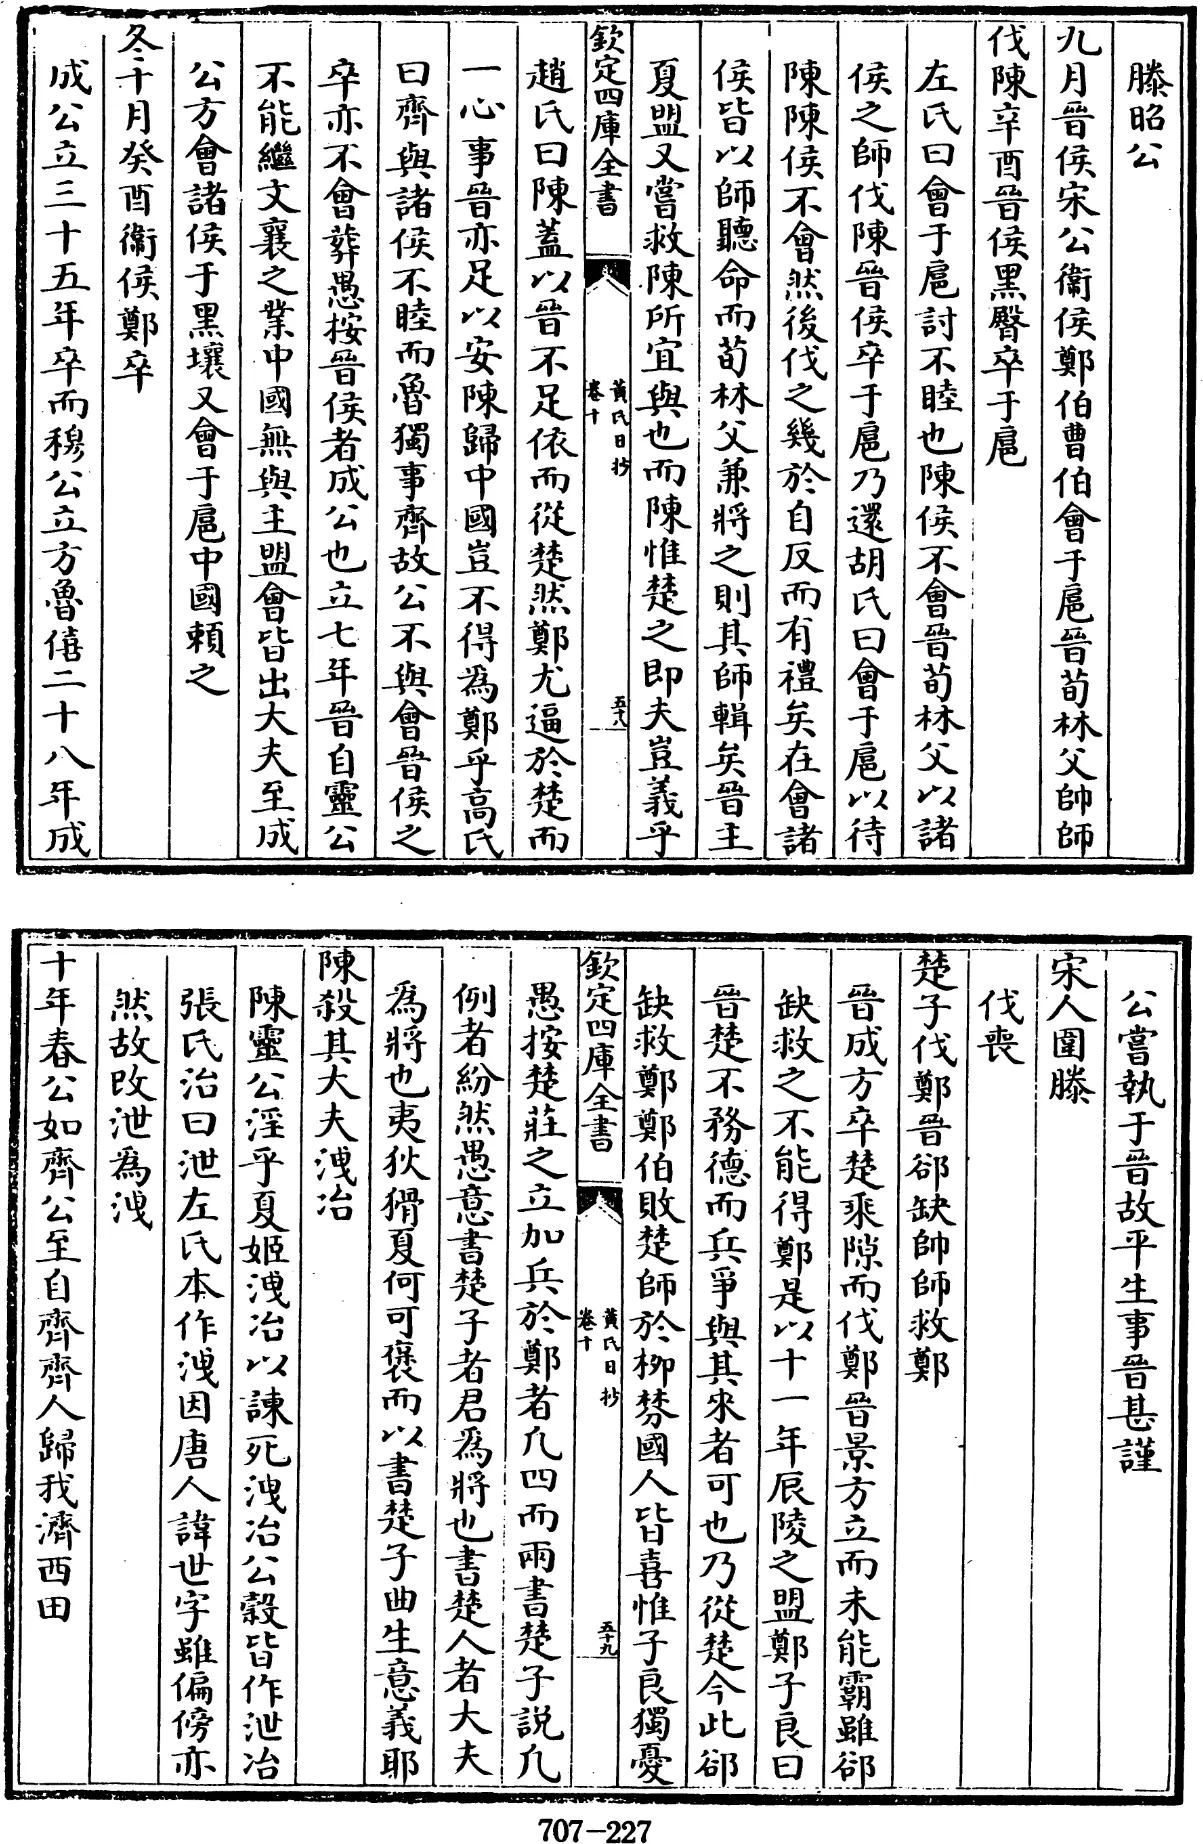 滕昭公
九月晉侯宋公衞侯鄭伯曹伯會于扈晉荀林父帥師
伐陳辛酉晉侯黑臀卒于扈
左氏曰會于扈討不睦也陳侯不會晉荀林父以諸
侯之師伐陳晉侯卒于扈乃還胡氏曰會于扈以待
陳陳侯不會然後伐之幾於自反而有禮矣在會諸
侯皆以師聽命而荀林父兼將之則其師輯矣晉主
夏盟又嘗救陳所宜與也而陳惟楚之即夫豈義乎
欽定四庫全書
黃氏日抄
卷十
五十八
趙氏曰陳蓋以晉不足依而從楚然鄭尤逼於楚而
一心事晉亦足以安陳歸中國豈不得為鄭乎高氏
曰齊與諸侯不睦而魯獨事齊故公不與會晉侯之
卒亦不會葬愚按晉侯者成公也立七年晉自靈公
不能繼文襄之業中國無與主盟會皆出大夫至成
公方會諸侯于黑壤又會于扈中國頼之
冬十月癸酉衞侯鄭卒
成公立三十五年卒而穆公立方魯僖二十八年成
公嘗執于晉故平生事晉甚謹
宋人圍滕
伐喪
楚子伐鄭晉郤缺帥師救鄭
晉成方卒楚乘隙而伐鄭晉景方立而未能霸雖郤
缺救之不能得鄭是以十一年辰陵之盟鄭子良曰
晉楚不務德而兵爭與其來者可也乃從楚今此郤
缺救鄭鄭伯敗楚師於柳棼國人皆喜惟子良獨憂
欽定四庫全書
黃氏日抄
卷十
五十九
愚按楚莊之立加兵於鄭者凡四而兩書楚子説凡
例者紛然愚意書楚子者君為將也書楚人者大夫
為將也夷狄猾夏何可褒而以書楚子曲生意義耶
陳殺其大夫洩冶
陳靈公淫乎夏姬洩冶以諫死洩冶公榖皆作泄冶
張氏洽曰泄左氏本作洩因唐人諱世字雖偏傍亦
然故改泄為洩
十年春公如齊公至自齊齊人歸我濟西田
707-227